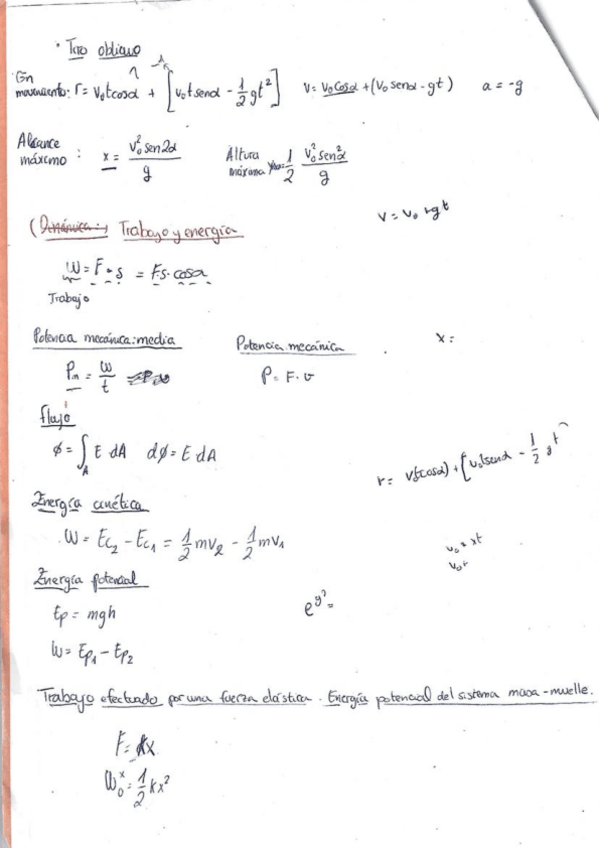 · Tiro oblicuo
En
movimiento: r = v₀tcosα + [v₀tsenα - 1/2 gt²]   v = v₀cosα + (v₀senα - gt)   a = -g
Alcance
máximo : x = v₀² sen2α / g   Altura
máxima = 1/2 v₀² sen²α / g
v = v₀ + gt
(Dinámica:) Trabajo y energía
W = F · s = F·s·cosα
Trabajo
Potencia mecánica: media   Potencia mecánica   x =
Pm = W/t   P = F · v
flujo
ϕ = ∫A E · dA   dϕ = E · dA
r = v₀tcosα) + [v₀tsenα - 1/2 gt
Energía cinética
W = Ec₂ - Ec₁ = 1/2 mv₂ - 1/2 mv₁
v₀ = xt
v₀ +
Energía potencial
Ep = mgh   e^y² =
W = Ep₁ - Ep₂
Trabajo efectuado por una fuerza elástica. Energía potencial del sistema masa-muelle.
F = kx
W₀ˣ = 1/2 kx²